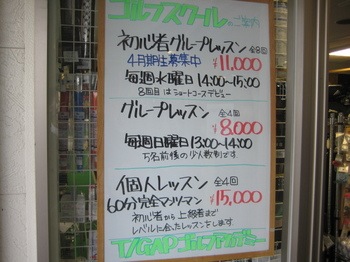 ゴルフスクールのご案内
初心者グループレッスン 全8回
4月期生募集中 ¥11,000
毎週水曜日 14:00~15:00
8回目はショートコースデビュー
グループレッスン 全4回
¥8,000
毎週日曜日 13:00~14:00
5名前後の少人数制です
個人レッスン 全4回
60分完全マンツーマン ¥15,000
初心者から上級者まで
レベルに合ったレッスンをします
ゴルフアカデミー